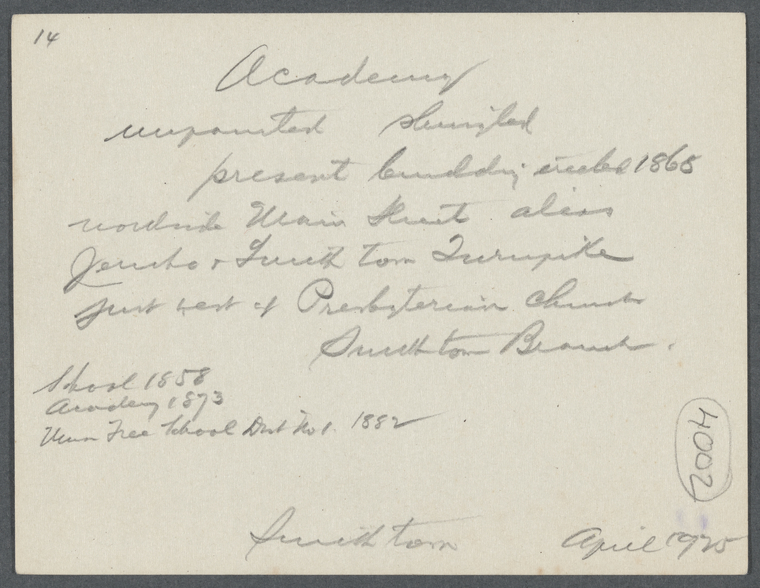 14
Academy
unpainted shingled
present building erected 1868
northside Main Street alias
Jericho & Smithtown Turnpike
just west of Presbyterian Church
Smithtown Branch.
School 1858
Academy 1873
Union Free School Dist No 1. 1882
4002
Smithtown April 1925